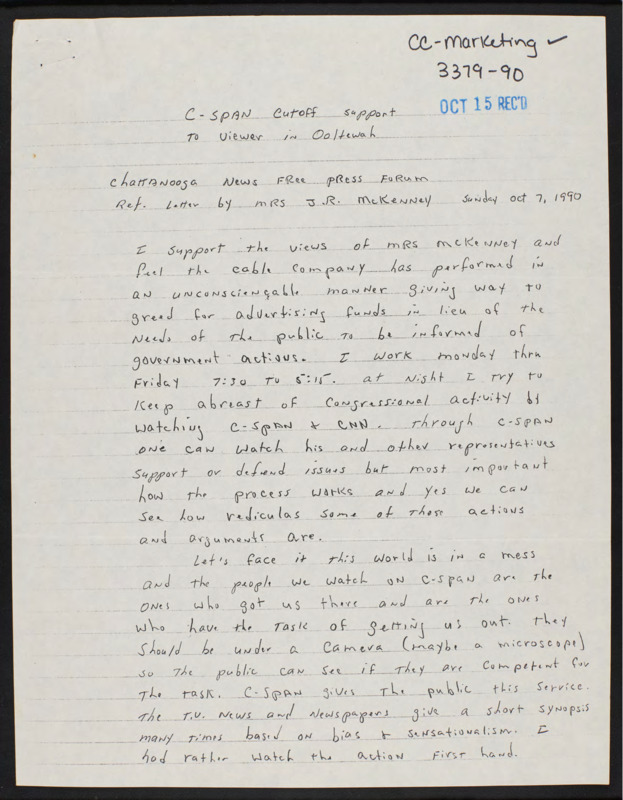 CC-Marketing ✓
3379-90
OCT 15 REC'D
C-SPAN Cutoff support
To Viewer in Ooltewah
Chattanooga News Free Press Forum
Ref. Letter by MRS J.R. McKenney Sunday Oct 7, 1990
I support the views of MRS McKenney and
feel the cable company has performed in
an unconsciengable manner giving way to
greed for advertising funds in lieu of the
needs of the public to be informed of
government actions. I work monday thru
Friday 7:30 to 5:15. at night I try to
keep abreast of Congressional activity by
watching C-SPAN & CNN. Through C-SPAN
one can watch his and other representatives
support or defend issues but most important
how the process works and yes we can
see how rediculas some of those actions
and arguments are.
Let's face it this world is in a mess
and the people we watch on C-SPAN are the
ones who got us there and are the ones
who have the task of getting us out. They
should be under a camera (maybe a microscope)
so the public can see if they are competent for
the task. C-SPAN gives the public this service.
The T.V. News and Newspapers give a short synopsis
many times based on bias & sensationalism. I
had rather watch the action first hand.